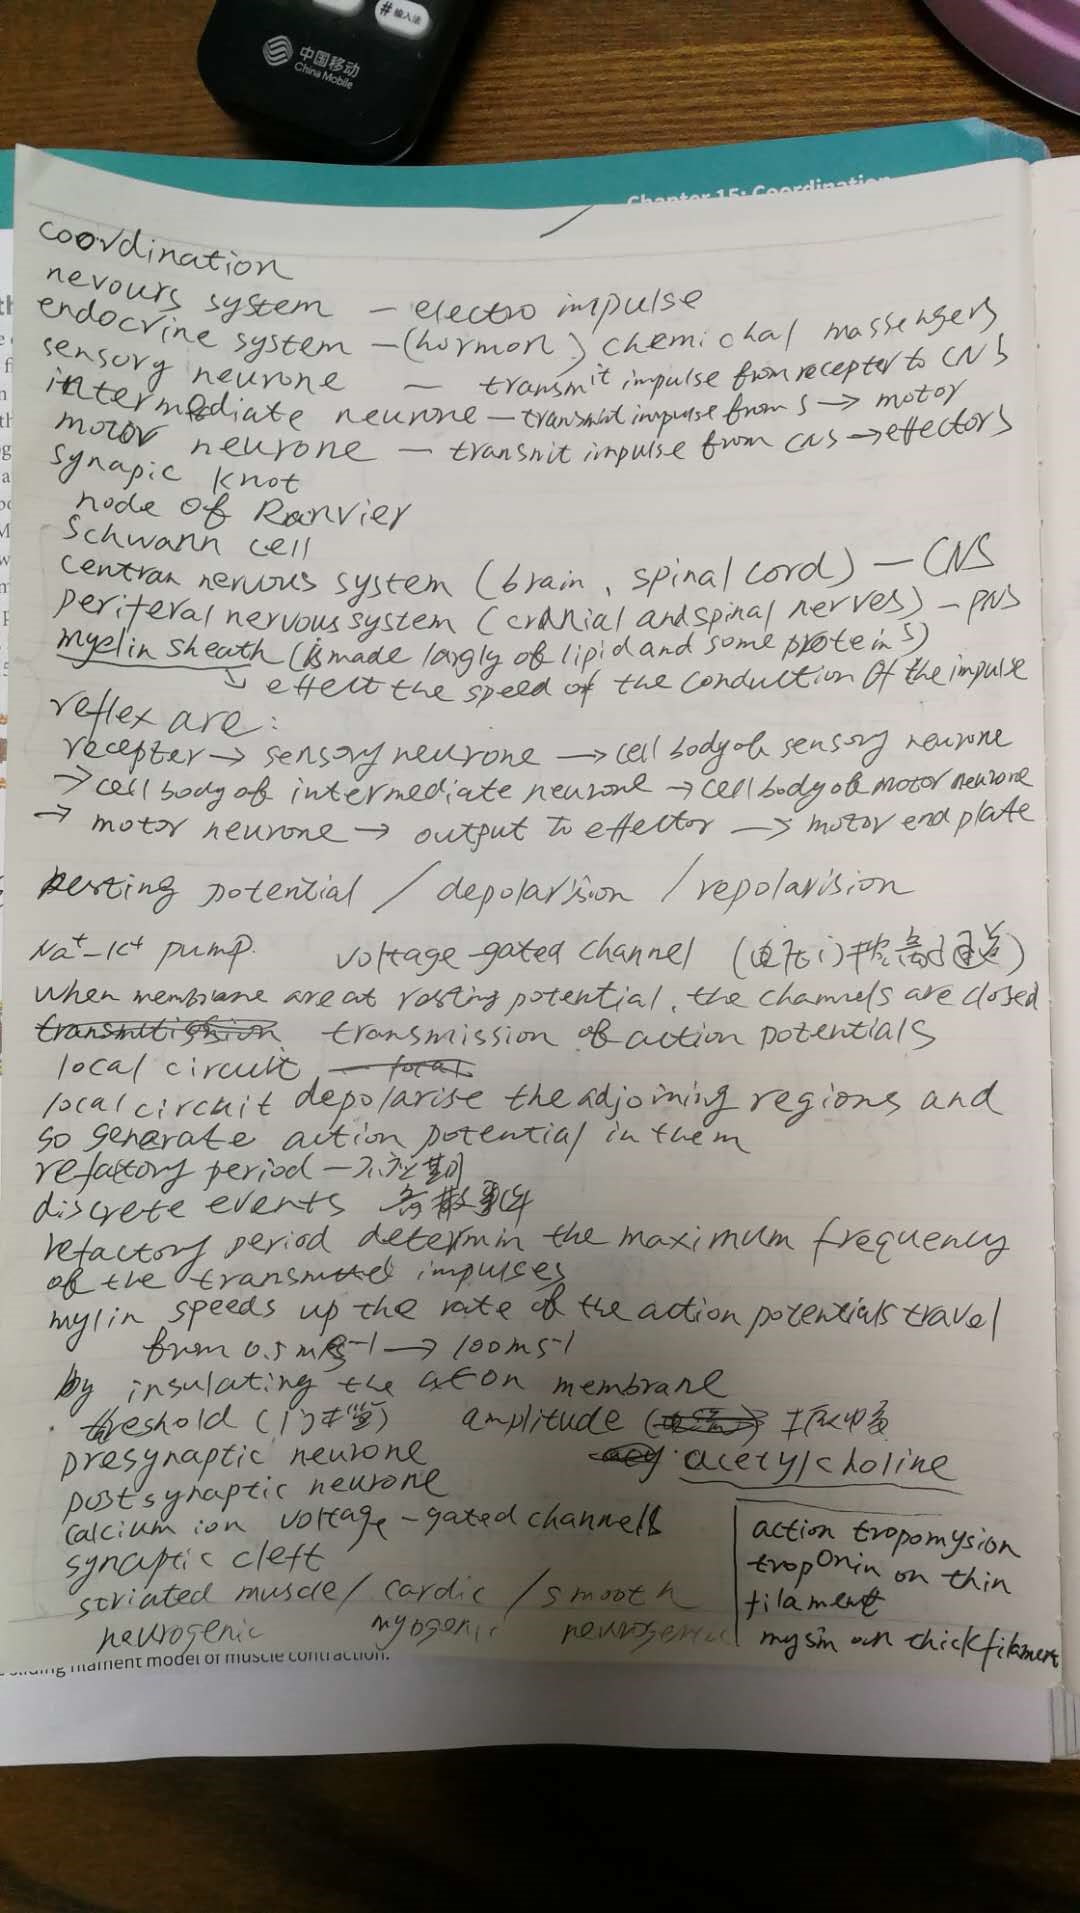 #输入法
中国移动
China Mobile
Chapter 15: Coordination
coordination
nevours system – electro impulse
endocrine system – (hormon) chemichal massengers
sensory neurone – transmit impulse from recepter to CNS
intermediate neurone – transmit impulse from s → motor
motor neurone – transnit impulse from CNS → effectors
synapic knot
node of Ranvier
Schwann cell
centran nervous system (brain, spinal cord) – CNS
periferal nervous system (cranial and spinal nerves) – PNS
myelin sheath (is made largly of lipid and some proteins)
↳ effect the speed of the conduction of the impulse
reflex are:
recepter → sensory neurone → cell body of sensory neurone
→ cell body of intermediate neurone → cell body of motor neurone
→ motor neurone → output to effector → motor end plate
resting potential / depolarision / repolarision
Na⁺–K⁺ pump. voltage-gated channel (电压门控离子通道)
when membrane are at resting potential, the channels are closed
transmission of action potentials
local circuit
local circuit depolarise the adjoining regions and
so generate action potential in them
refactory period – 不应期
discrete events 离散事件
refactory period determin the maximum frequency
of the transmitted impulses
mylin speeds up the rate of the action potentials travel
from 0.5 ms⁻¹ → 100 ms⁻¹
by insulating the axon membrane
threshold (门槛) amplitude 振幅
presynaptic neurone acetylcholine
postsynaptic neurone
calcium ion voltage-gated channells
synaptic cleft
striated muscle / cardic / smooth
neurogenic myogenic neurogenic
action tropomysion
troponin on thin
filament
mysin on thick filament
sliding filament model of muscle contraction.